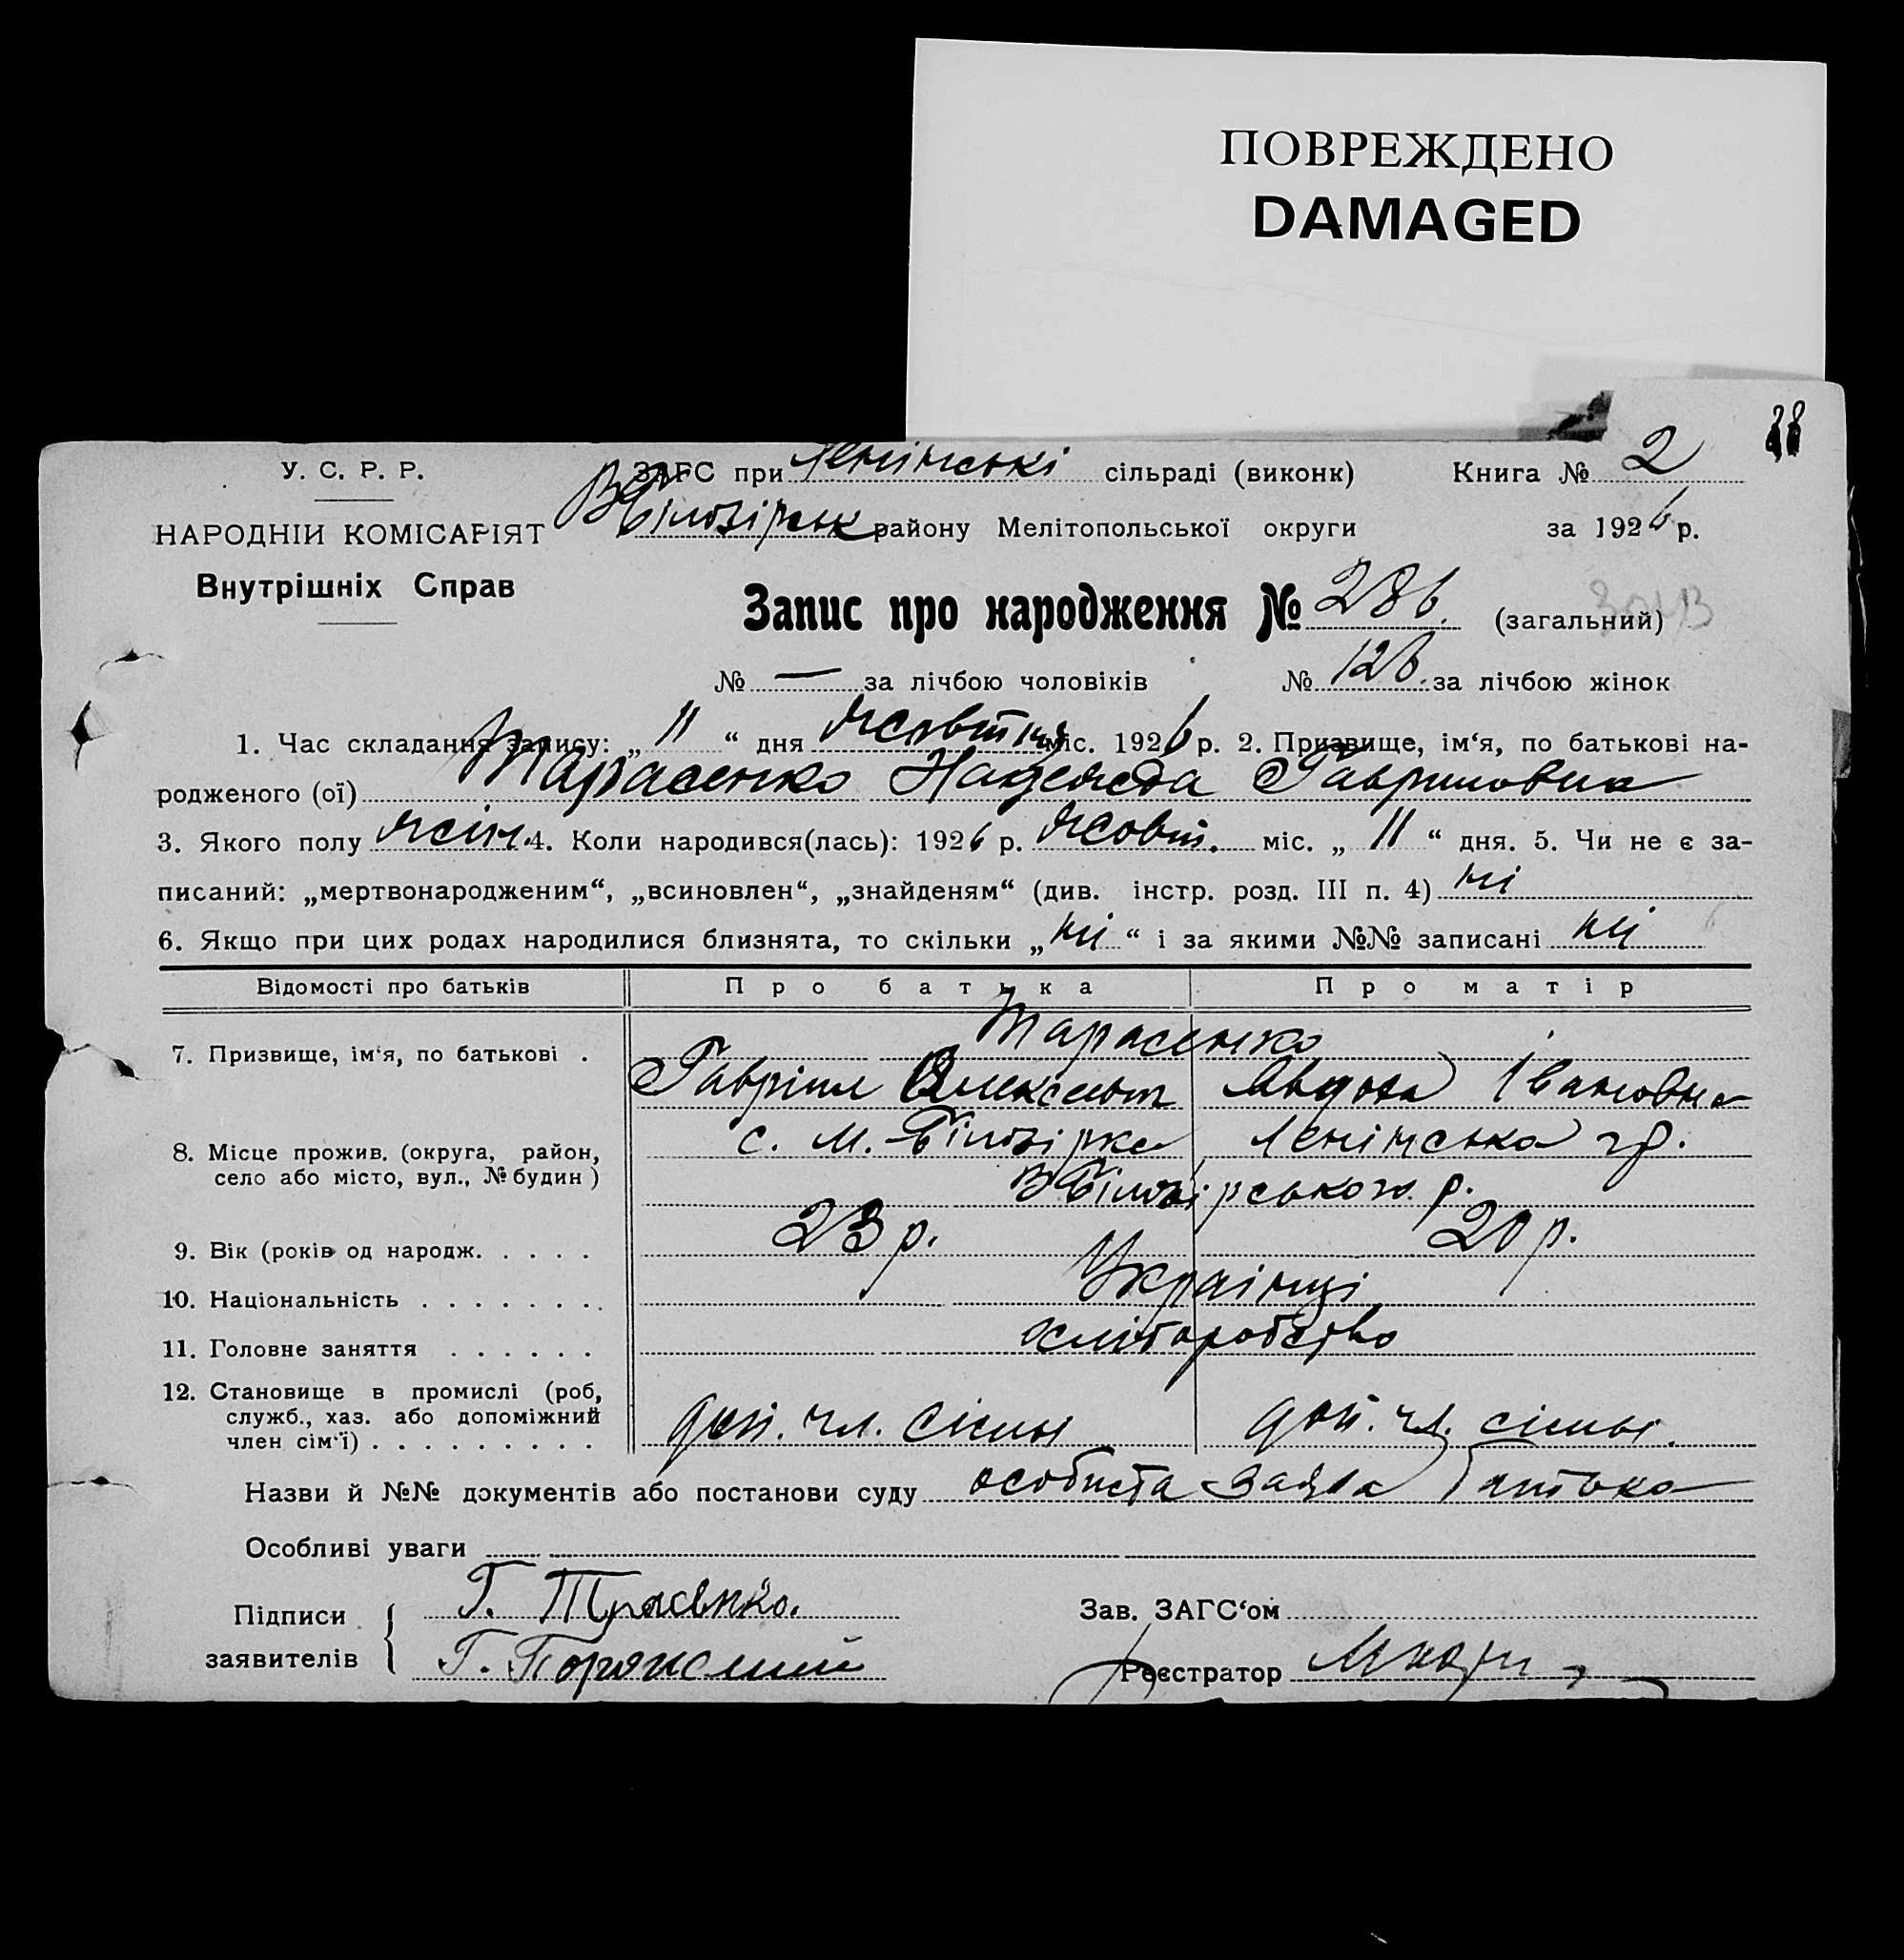 ПОВРЕЖДЕНО
DAMAGED
28
У. С. Р. Р.
НАРОДНІЙ КОМІСАРІЯТ
Внутрішніх Справ
ЗАГС при Ленінські сільраді (виконк) Книга № 2
В Білозірськ району Мелітопольської округи за 1926 р.
Запис про народження № 286. (загальний)
№ — за лічбою чоловіків № 126. за лічбою жінок
1. Час складання запису: „ 11 “ дня жовтня міс. 1926 р. 2. Призвище, ім‘я, по батькові на-
родженого (ої) Тарасенко Надежда Гавриловна
3. Якого полу жін. 4. Коли народився(лась): 1926 р. жовт. міс. „ 11 “ дня. 5. Чи не є за-
писаний: „мертвонародженим“, „всиновлен“, „знайденям“ (див. інстр. розд. III п. 4) ні
6. Якщо при цих родах народилися близнята, то скільки „ ні “ і за якими №№ записані ні
Відомості про батьків Про батька Про матір
7. Призвище, ім‘я, по батькові . Тарасенко
Гавріил Олексеевич Явдоха Івановна
8. Місце прожив. (округа, район, с. М. Білозірка Ленінська гр.
село або місто, вул., № будин ) В Білозірського р.
9. Вік (років од народж. . . . . 23 р. 20 р.
10. Національність . . . . . . . . Українці
11. Головне заняття . . . . . . хліборобство
12. Становище в промислі (роб,
служб., хаз. або допоміжний
член сім‘ї) . . . . . . . . . доп. чл. сімьи доп. чл. сімьи.
Назви й №№ документів або постанови суду особиста заява батька
Особливі уваги
Підписи Г. Тарасенко. Зав. ЗАГС‘ом
заявителів Г. Реєстратор